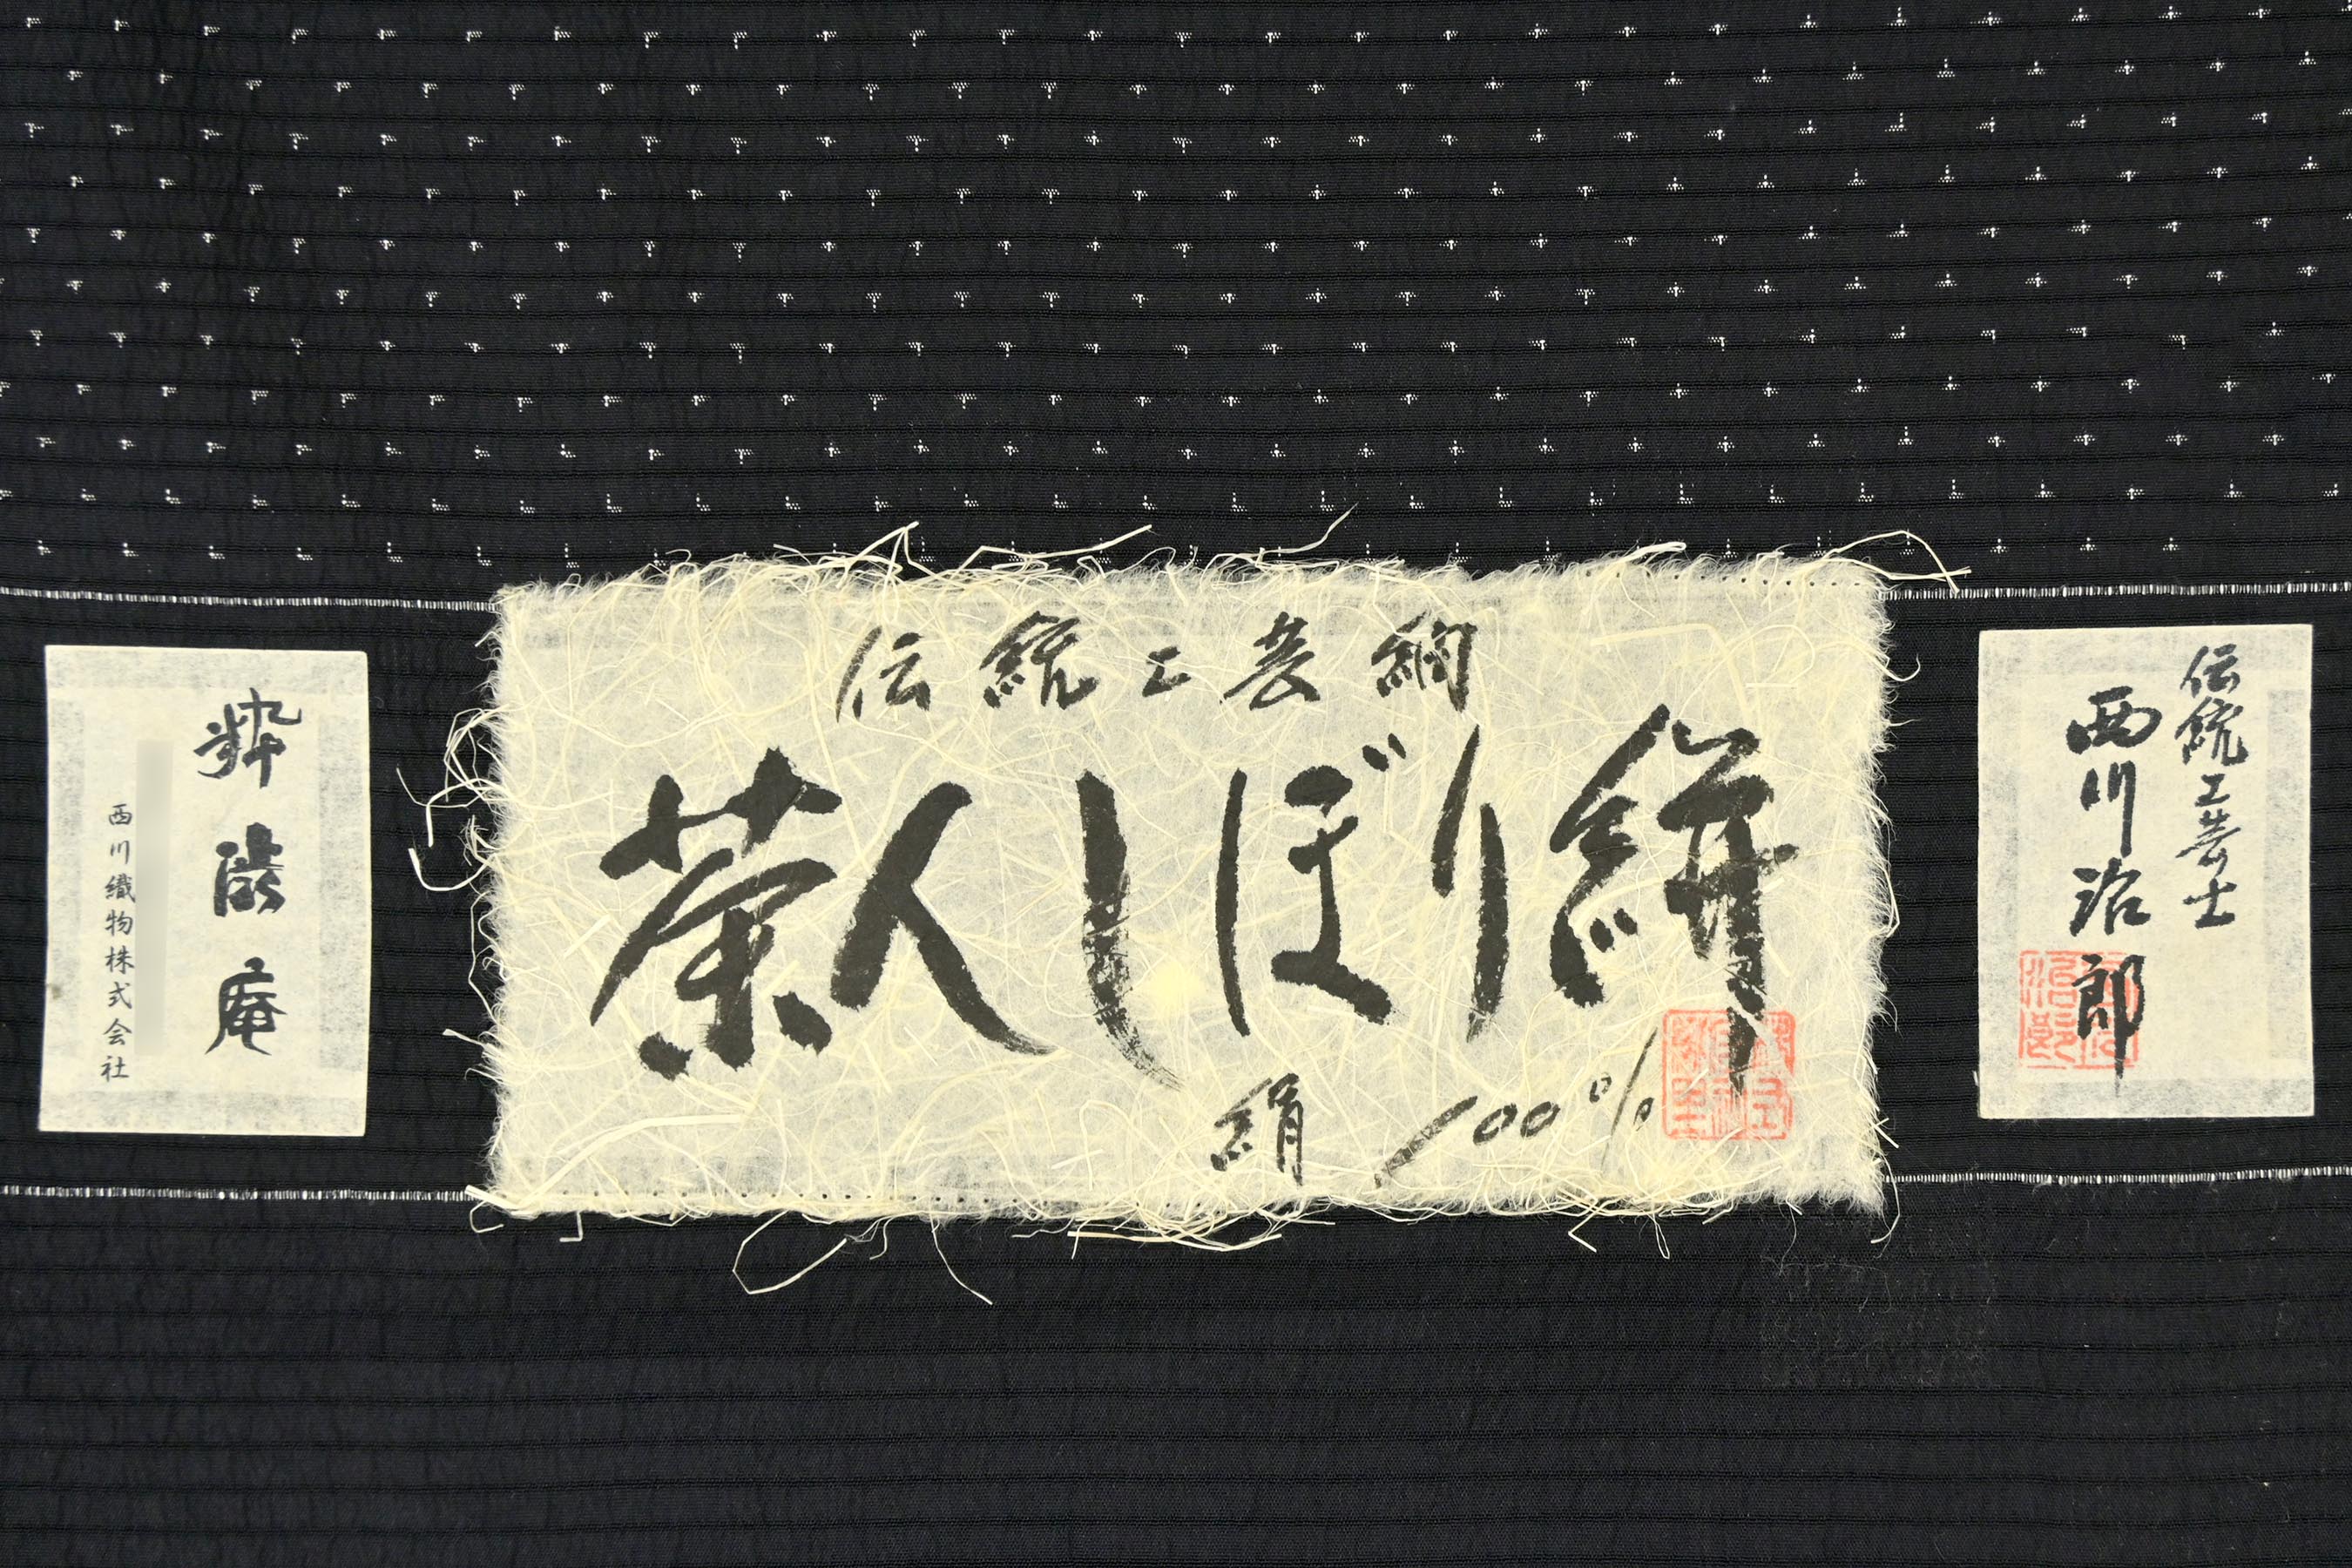 伝統工芸
茶人しぼり絣
絹 100%
伝統工芸士
西川治郎
粋 庵
西川織物株式会社